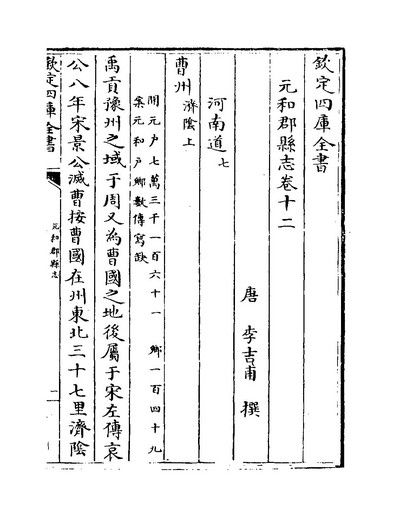 欽定四庫全書
元和郡縣志卷十二
唐 李吉甫 撰
河南道七
曹州濟陰上
開元户七萬三千一百六十一 鄉一百四十九
案元和户鄉數傳寫缺
禹貢豫州之域于周又為曹國之地後屬于宋左傳哀
公八年宋景公滅曹按曹國在州東北三十七里濟陰
欽定四庫全書
元和郡縣志
一